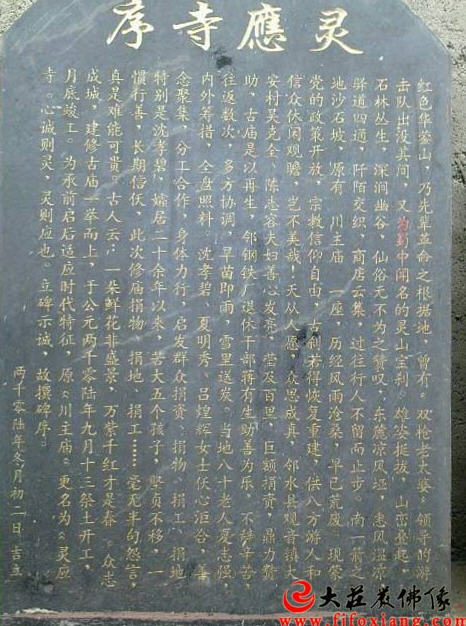 灵應寺序
红色华蓥山，乃先辈革命之根据地，曾有《双枪老太婆》领导的游
击队出没其间，又为蜀中闻名的灵山宝刹。雄姿挺拔，山峦叠起，
石林丛生，深涧幽谷，仙俗无不为之赞叹，东麓凉风垭，惠风
驿道四通，阡陌交织，商店云集，过往行人不留而止步。南一箭之
地沙石坡，原有《川主庙》一座，历经风雨沧桑，早已荒废。现荣
党的政策开放，宗教信仰自由，古刹若得恢复重建，供八方游人和
信众休闲观瞻，岂不美哉！天从人愿，众思成真，邻水县观音镇大
安村吴克全、陈志容夫妇善心发亮，莹及百里，巨额捐资，鼎力赞
助，古庙是以再生。邻钢铁厂退休干部蒋有生助善为乐，不辞辛苦，
往返数次，多方协调，旱苗即雨，雪里送炭。当地八十老人夏志强，
内外筹措，全盘照料。沈孝碧、夏明秀、吕煌辉女士仸心洽合，善
念聚集，分工合作，身体力行，启发群众捐资、捐物、捐工、捐地，
特别是沈孝碧，孀居二十余年以来，苦大五个孩子，坚贞不移，一
惯行善，长期信仸，此次修庙捐物、捐地、捐工……毫无半句怨言，
真是难能可贵。古人云：一朵鲜花非盛景，万紫千红才是春。众志
成城，建修古庙一举而上，于公元两千零陆年九月十三祭土开工，
月底竣工。为承前启后适应时代特征，原《川主庙》更名为《灵应
寺》。心诚则灵，灵则应也。立碑示诚，故撰碑序。
两千零陆年冬月初二日 吉立
大莊嚴佛像
www.fifoxiang.com